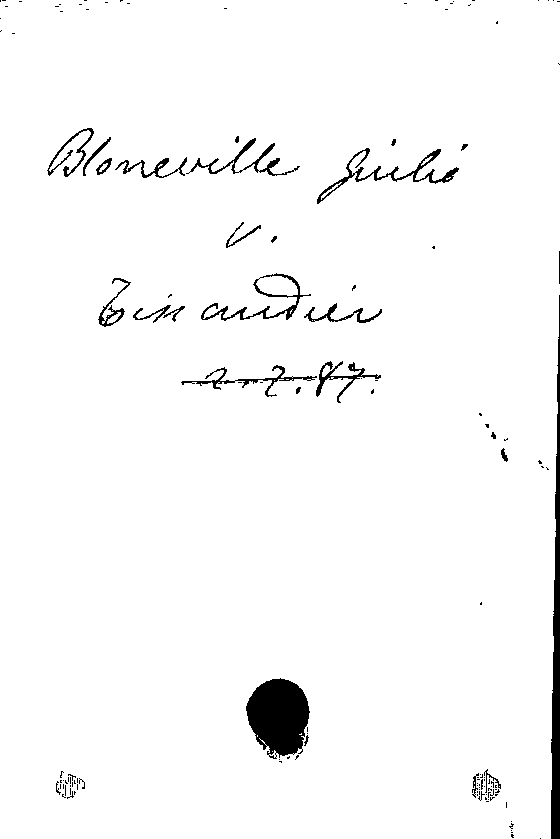 Bloneville Julie
v.
Tinandier
2.7.87.